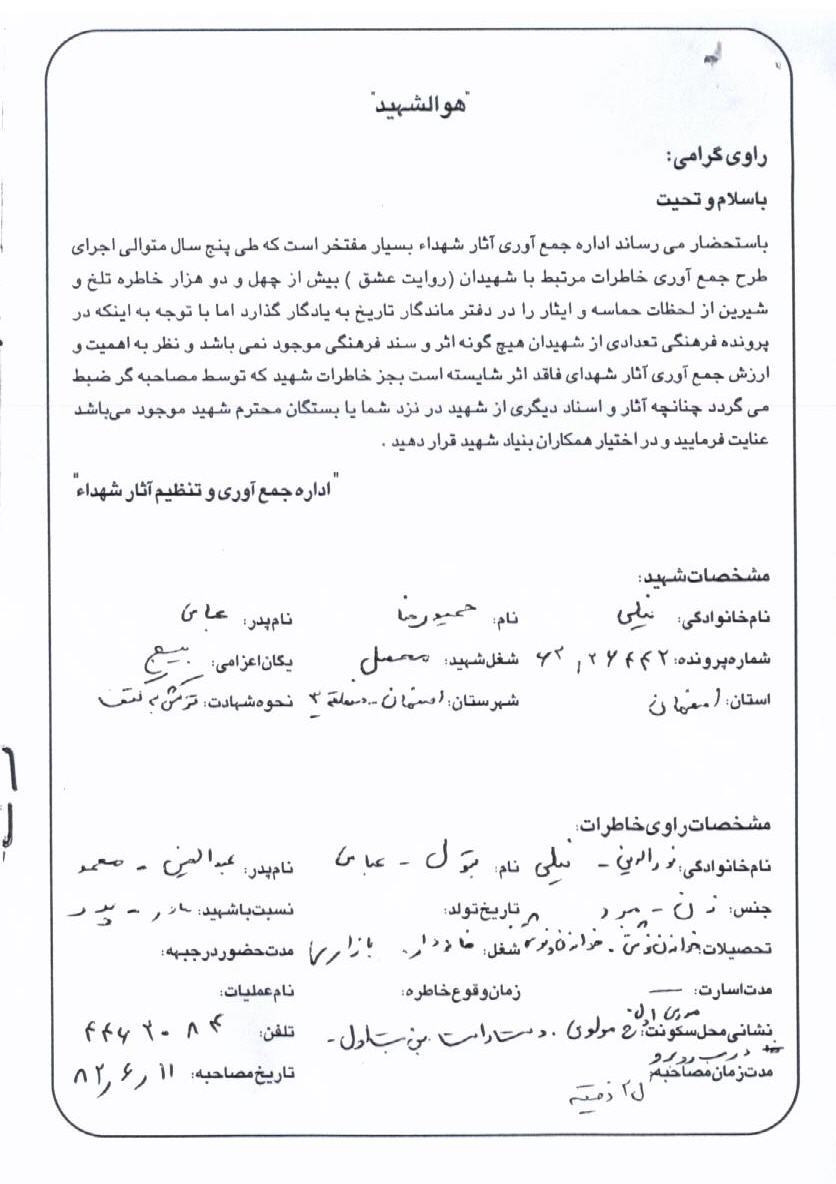 "هوالشهید"
راوی گرامی:
باسلام و تحیت
باستحضار می رساند اداره جمع آوری آثار شهداء بسیار مفتخر است که طی پنج سال متوالی اجرای
طرح جمع آوری خاطرات مرتبط با شهیدان (روایت عشق ) بیش از چهل و دو هزار خاطره تلخ و
شیرین از لحظات حماسه و ایثار را در دفتر ماندگار تاریخ به یادگار گذارد اما با توجه به اینکه در
پرونده فرهنگی تعدادی از شهیدان هیچ گونه اثر و سند فرهنگی موجود نمی باشد و نظر به اهمیت و
ارزش جمع آوری آثار شهدای فاقد اثر شایسته است بجز خاطرات شهید که توسط مصاحبه گر ضبط
می گردد چنانچه آثار و اسناد دیگری از شهید در نزد شما یا بستگان محترم شهید موجود می‌باشد
عنایت فرمایید و در اختیار همکاران بنیاد شهید قرار دهید .
"اداره جمع آوری و تنظیم آثار شهداء"
مشخصات شهید:
نام خانوادگی: نیلی نام: حمیدرضا نام پدر: عباس
شماره پرونده: شغل شهید: محصل یگان اعزامی: بسیج
استان: اصفهان شهرستان: اصفهان - منطقه ۳ نحوه شهادت:
مشخصات راوی خاطرات:
نام خانوادگی: نورالدین - نیلی نام: بتول - عباس نام پدر: عبدالحسین - محمد
جنس: زن - مرد تاریخ تولد: نسبت باشهید: مادر - پدر
تحصیلات: شغل: خانه دار. بازاری مدت حضور در جبهه:
مدت اسارت: — زمان وقوع خاطره: نام عملیات:
نشانی محل سکونت: خ مولوی . تلفن: ۴۴۶۳۰۸۴
مدت زمان مصاحبه: دقیقه تاریخ مصاحبه: ۸۲٫۶٫۱۱